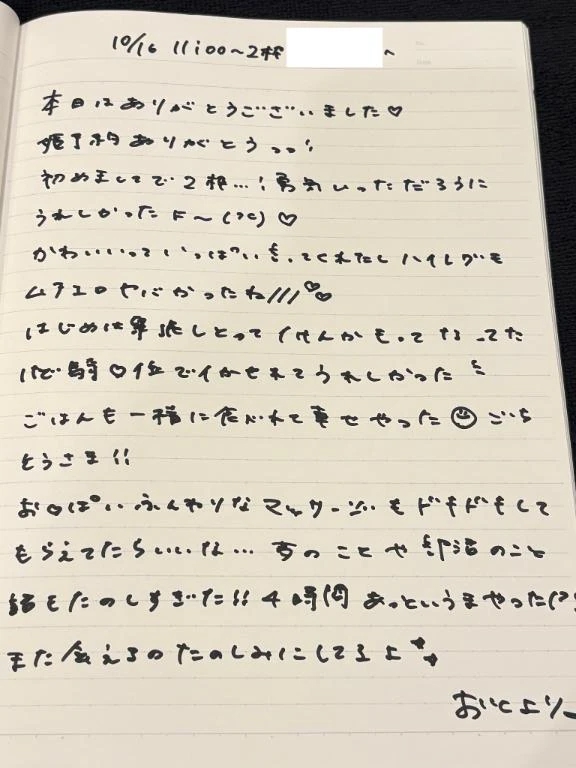 10/16 11:00〜2枠 へ
本日はありがとうございました♡
ありがとうっっ!
初めましてで2枠…!勇気いっただろうに
うれしかったよ〜 ♡
かわいいっていっぱい言ってくれたしハイレグも
ムチエロヤバかったね///♡♡
はじめは しとって けんかもってなってた
けど騎♡位でイかせれてうれしかった
ごはんも一緒に食べれて幸せやった☺ごち
とうさま!!
お♡ぱいふんわりなマッサージもドキドキして
もらえてたらいいな… のことや部活のこと
話もたのしすぎた!!4時間あっというまやった
また会えるのたのしみにしてるよ
おいとより